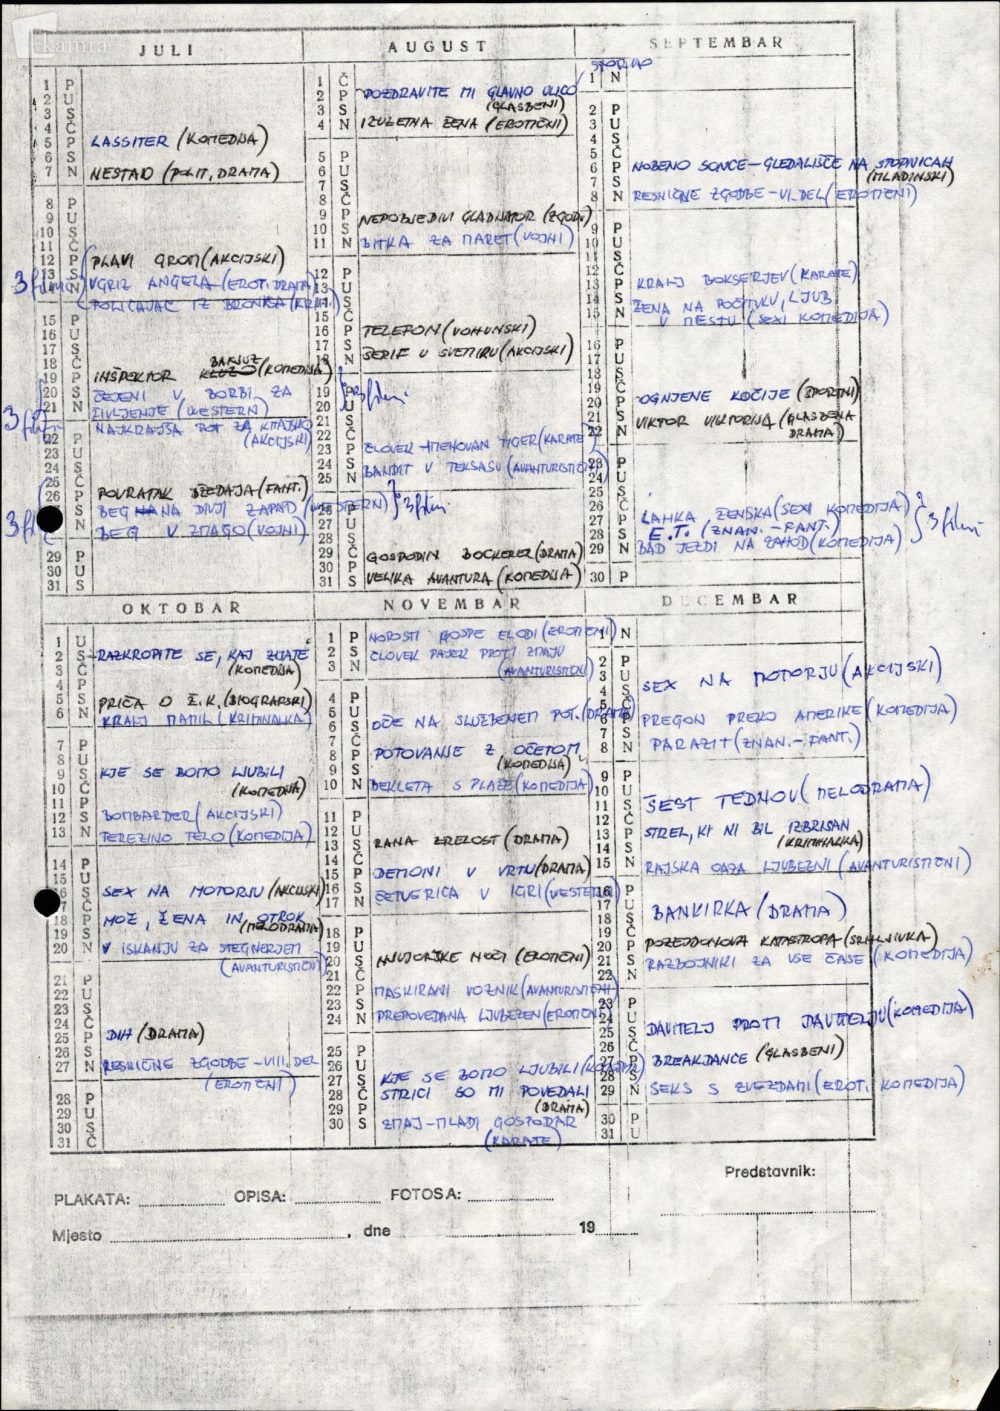 kamra
JULI
1 P
2 U
3 S
4 Č
5 P LASSITER (KOMEDIJA)
6 S
7 N NESTAO (POLIT. DRAMA)
8 P
9 U
10 S
11 Č
12 P PLAVI GROM (AKCIJSKI)
13 S UGRIZ ANGELA (EROT. DRAMA)
14 N POLICAJAC IZ BRONKSA (KRIM.)
3 filmi
15 P
16 U
17 S
18 Č
19 P INŠPEKTOR (KOMEDIJA)
20 S ČEJENI V BORBI ZA
21 N ŽIVLJENJE (WESTERN)
NAJKRAJŠA POT ZA KITAJSKO
(AKCIJSKI)
3 filmi
22 P
23 U
24 S
25 Č
26 P POVRATAK DŽEDAJA (FANT.)
27 S BEG NA DIVJI ZAPAD (WESTERN)
28 N BEG V ZMAGO (VOJNI)
3 filmi
29 P
30 U
31 S
AUGUST
1 Č
2 P POZDRAVITE MI GLAVNO ULICO
3 S (GLASBENI)
4 N IZUZETNA ŽENA (EROTIČNI)
5 P
6 U
7 S
8 Č
9 P NEPOBJEDIVI GLADIJATOR (ZGOD.)
10 S
11 N BITKA ZA MARET (VOJNI)
12 P
13 U
14 S
15 Č
16 P TELEFON (VOHUNSKI)
17 S
18 N ŠERIF U SVEMIRU (AKCIJSKI)
3 filmi
19 P
20 U
21 S
22 Č
23 P ČLOVEK IMENOVAN TIGER (KARATE)
24 S
25 N BANDIT V TEKSASU (AVANTURISTIČNI)
3 filmi
26 P
27 U
28 S
29 Č GOSPODIN BOCKERER (DRAMA)
30 P
31 S VELIKA AVANTURA (KOMEDIJA)
SEPTEMBAR
1 N
2 P
3 U
4 S
5 Č
6 P NOBENO SONCE - GLEDALIŠČE NA STOPNICAH
7 S (MLADINSKI)
8 N RESNIČNE ZGODBE - VI. DEL (EROTIČNI)
9 P
10 U
11 S
12 Č
13 P KRALJ BOKSERJEV (KARATE)
14 S ŽENA NA POČITKU, LJUB.
15 N V MESTU (SEXI KOMEDIJA)
16 P
17 U
18 S
19 Č
20 P OGNJENE KOČIJE (ŠPORTNI)
21 S VIKTOR VIKTORIJA (GLASBENA
22 N DRAMA)
23 P
24 U
25 S
26 Č
27 P LAHKA ŽENSKA (SEXI KOMEDIJA)
28 S E.T. (ZNAN.-FANT.)
29 N BAD JEZDI NA ZAHOD (KOMEDIJA)
3 filmi
30 P
OKTOBAR
1 U
2 S RAZKROPITE SE, KAJ ZIJATE
3 Č (KOMEDIJA)
4 P
5 S PRIČA O Ž.K. (BIOGRAFSKI)
6 N KRALJ MAMIL (KRIMINALKA)
7 P
8 U
9 S KJE SE BOMO LJUBILI
10 Č (KOMEDIJA)
11 P
12 S BOMBARDER (AKCIJSKI)
13 N TEREZINO TELO (KOMEDIJA)
14 P
15 U
16 S SEX NA MOTORJU (AKCIJSKI)
17 Č
18 P MOŽ, ŽENA IN OTROK
19 S (MELODRAMA)
20 N V ISKANJU ZA STEGNERJEM
(AVANTURISTIČNI)
21 P
22 U
23 S
24 Č
25 P DUH (DRAMA)
26 S
27 N RESNIČNE ZGODBE - VIII. DEL
(EROTIČNI)
28 P
29 U
30 S
31 Č
NOVEMBAR
1 P NOROSTI GOSPE ELODI (EROTIČNI)
2 S ČLOVEK PAJEK PROTI ZMAJU
3 N (AVANTURISTIČNI)
4 P
5 U
6 S OČE NA SLUŽBENEM POT. (DRAMA)
7 Č
8 P POTOVANJE Z OČETOM
9 S (KOMEDIJA)
10 N DEKLETA S PLAŽE (KOMEDIJA)
11 P
12 U
13 S RANA ZRELOST (DRAMA)
14 Č
15 P DEMONI V VRTU (DRAMA)
16 S
17 N ČETVERICA V IGRI (WESTERN)
18 P
19 U
20 S NJUJORŠKE NOČI (EROTIČNI)
21 Č
22 P MASKIRANI VOZNIK (AVANTURISTIČNI)
23 S
24 N PREPOVEDANA LJUBEZEN (EROTIČNI)
25 P
26 U
27 S KJE SE BOMO LJUBILI (KOMEDIJA)
28 Č STRICI SO MI POVEDALI
29 P (DRAMA)
30 S ZMAJ-MLADI GOSPODAR
(KARATE)
DECEMBAR
1 N
2 P
3 U
4 S SEX NA MOTORJU (AKCIJSKI)
5 Č
6 P PREGON PREKO AMERIKE (KOMEDIJA)
7 S
8 N PARAZIT (ZNAN.-FANT.)
9 P
10 U
11 S ŠEST TEDNOV (MELODRAMA)
12 Č
13 P STREL, KI NI BIL IZBRISAN
14 S (KRIMINALKA)
15 N RAJSKA OAZA LJUBEZNI (AVANTURISTIČNI)
16 P
17 U
18 S BANKIRKA (DRAMA)
19 Č
20 P POZEJDONOVA KATASTROFA (SRHLJIVKA)
21 S RAZBOJNIKI ZA VSE ČASE (KOMEDIJA)
22 N
23 P
24 U
25 S DAVITELJ PROTI DAVITELJU (KOMEDIJA)
26 Č
27 P BREAKDANCE (GLASBENI)
28 S
29 N SEKS S ZVEZDAMI (EROT. KOMEDIJA)
30 P
31 U
Predstavnik:
PLAKATA: OPISA: FOTOSA:
Mjesto , dne 19